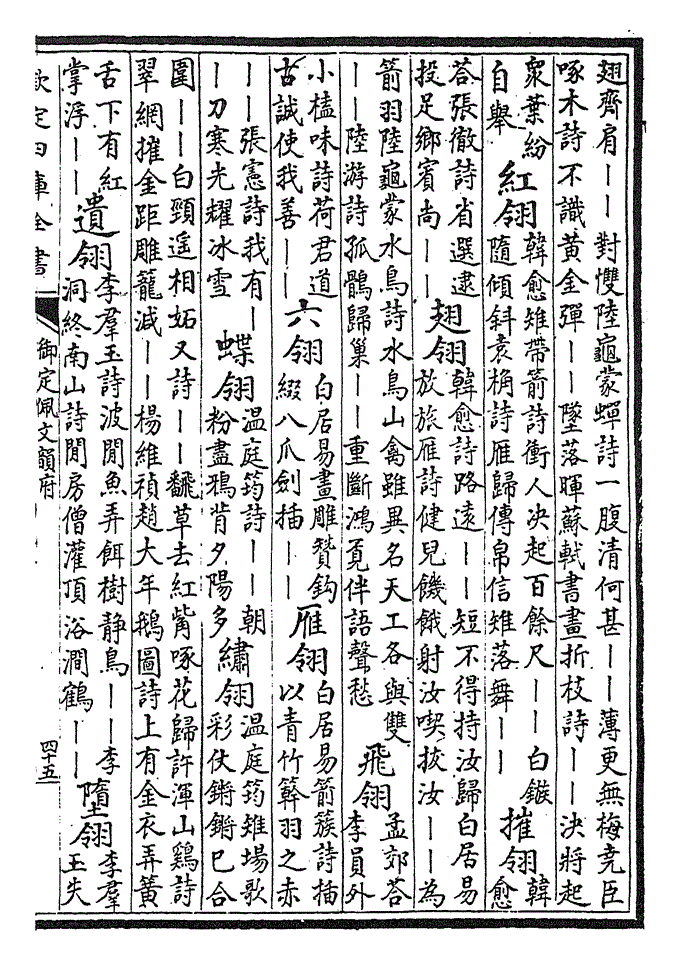 翅齊肩——對雙陸龜蒙蟬詩一腹清何甚——薄更無梅堯臣
啄木詩不識黃金彈——墜落暉蘇軾書畫折枝詩——决將起
衆葉紛
自舉
紅翎
韓愈雉帶箭詩衝人决起百餘尺——白鏃
隨傾斜袁桷詩雁歸傳帛信雉落舞——
摧翎
韓
愈
荅張徹詩省選逮
投足鄉賓尚——
翅翎
韓愈詩路遠——短不得持汝歸白居易
放旅雁詩健兒饑餓射汝喫拔汝——為
箭羽陸龜蒙水鳥詩水鳥山禽雖異名天工各與雙
——陸游詩孤鶻歸巢——重斷鴻覔伴語聲愁
飛翎
孟郊荅
李員外
小榼味詩荷君道
古誠使我善——
六翎
白居易畫雕贊鈎
綴八爪劍插——
雁翎
白居易箭簇詩插
以青竹簳羽之赤
——張憲詩我有—
—刀寒光耀冰雪
蝶翎
温庭筠詩——朝
粉盡鴉背夕陽多
繡翎
温庭筠雉場歌
彩仗鏘鏘巳合
圍——白頸遥相妬又詩——飜草去紅觜啄花歸許渾山鷄詩
翠網摧金距雕籠減——楊維禎趙大年鵝圖詩上有金衣弄簧
舌下有紅
掌浮——
遺翎
李羣玉詩波閒魚弄餌樹静鳥——李
洞終南山詩閒房僧灌頂浴澗鶴——
墮翎
李羣
玉失
欽定四庫全書
御定佩文韻府
四十五